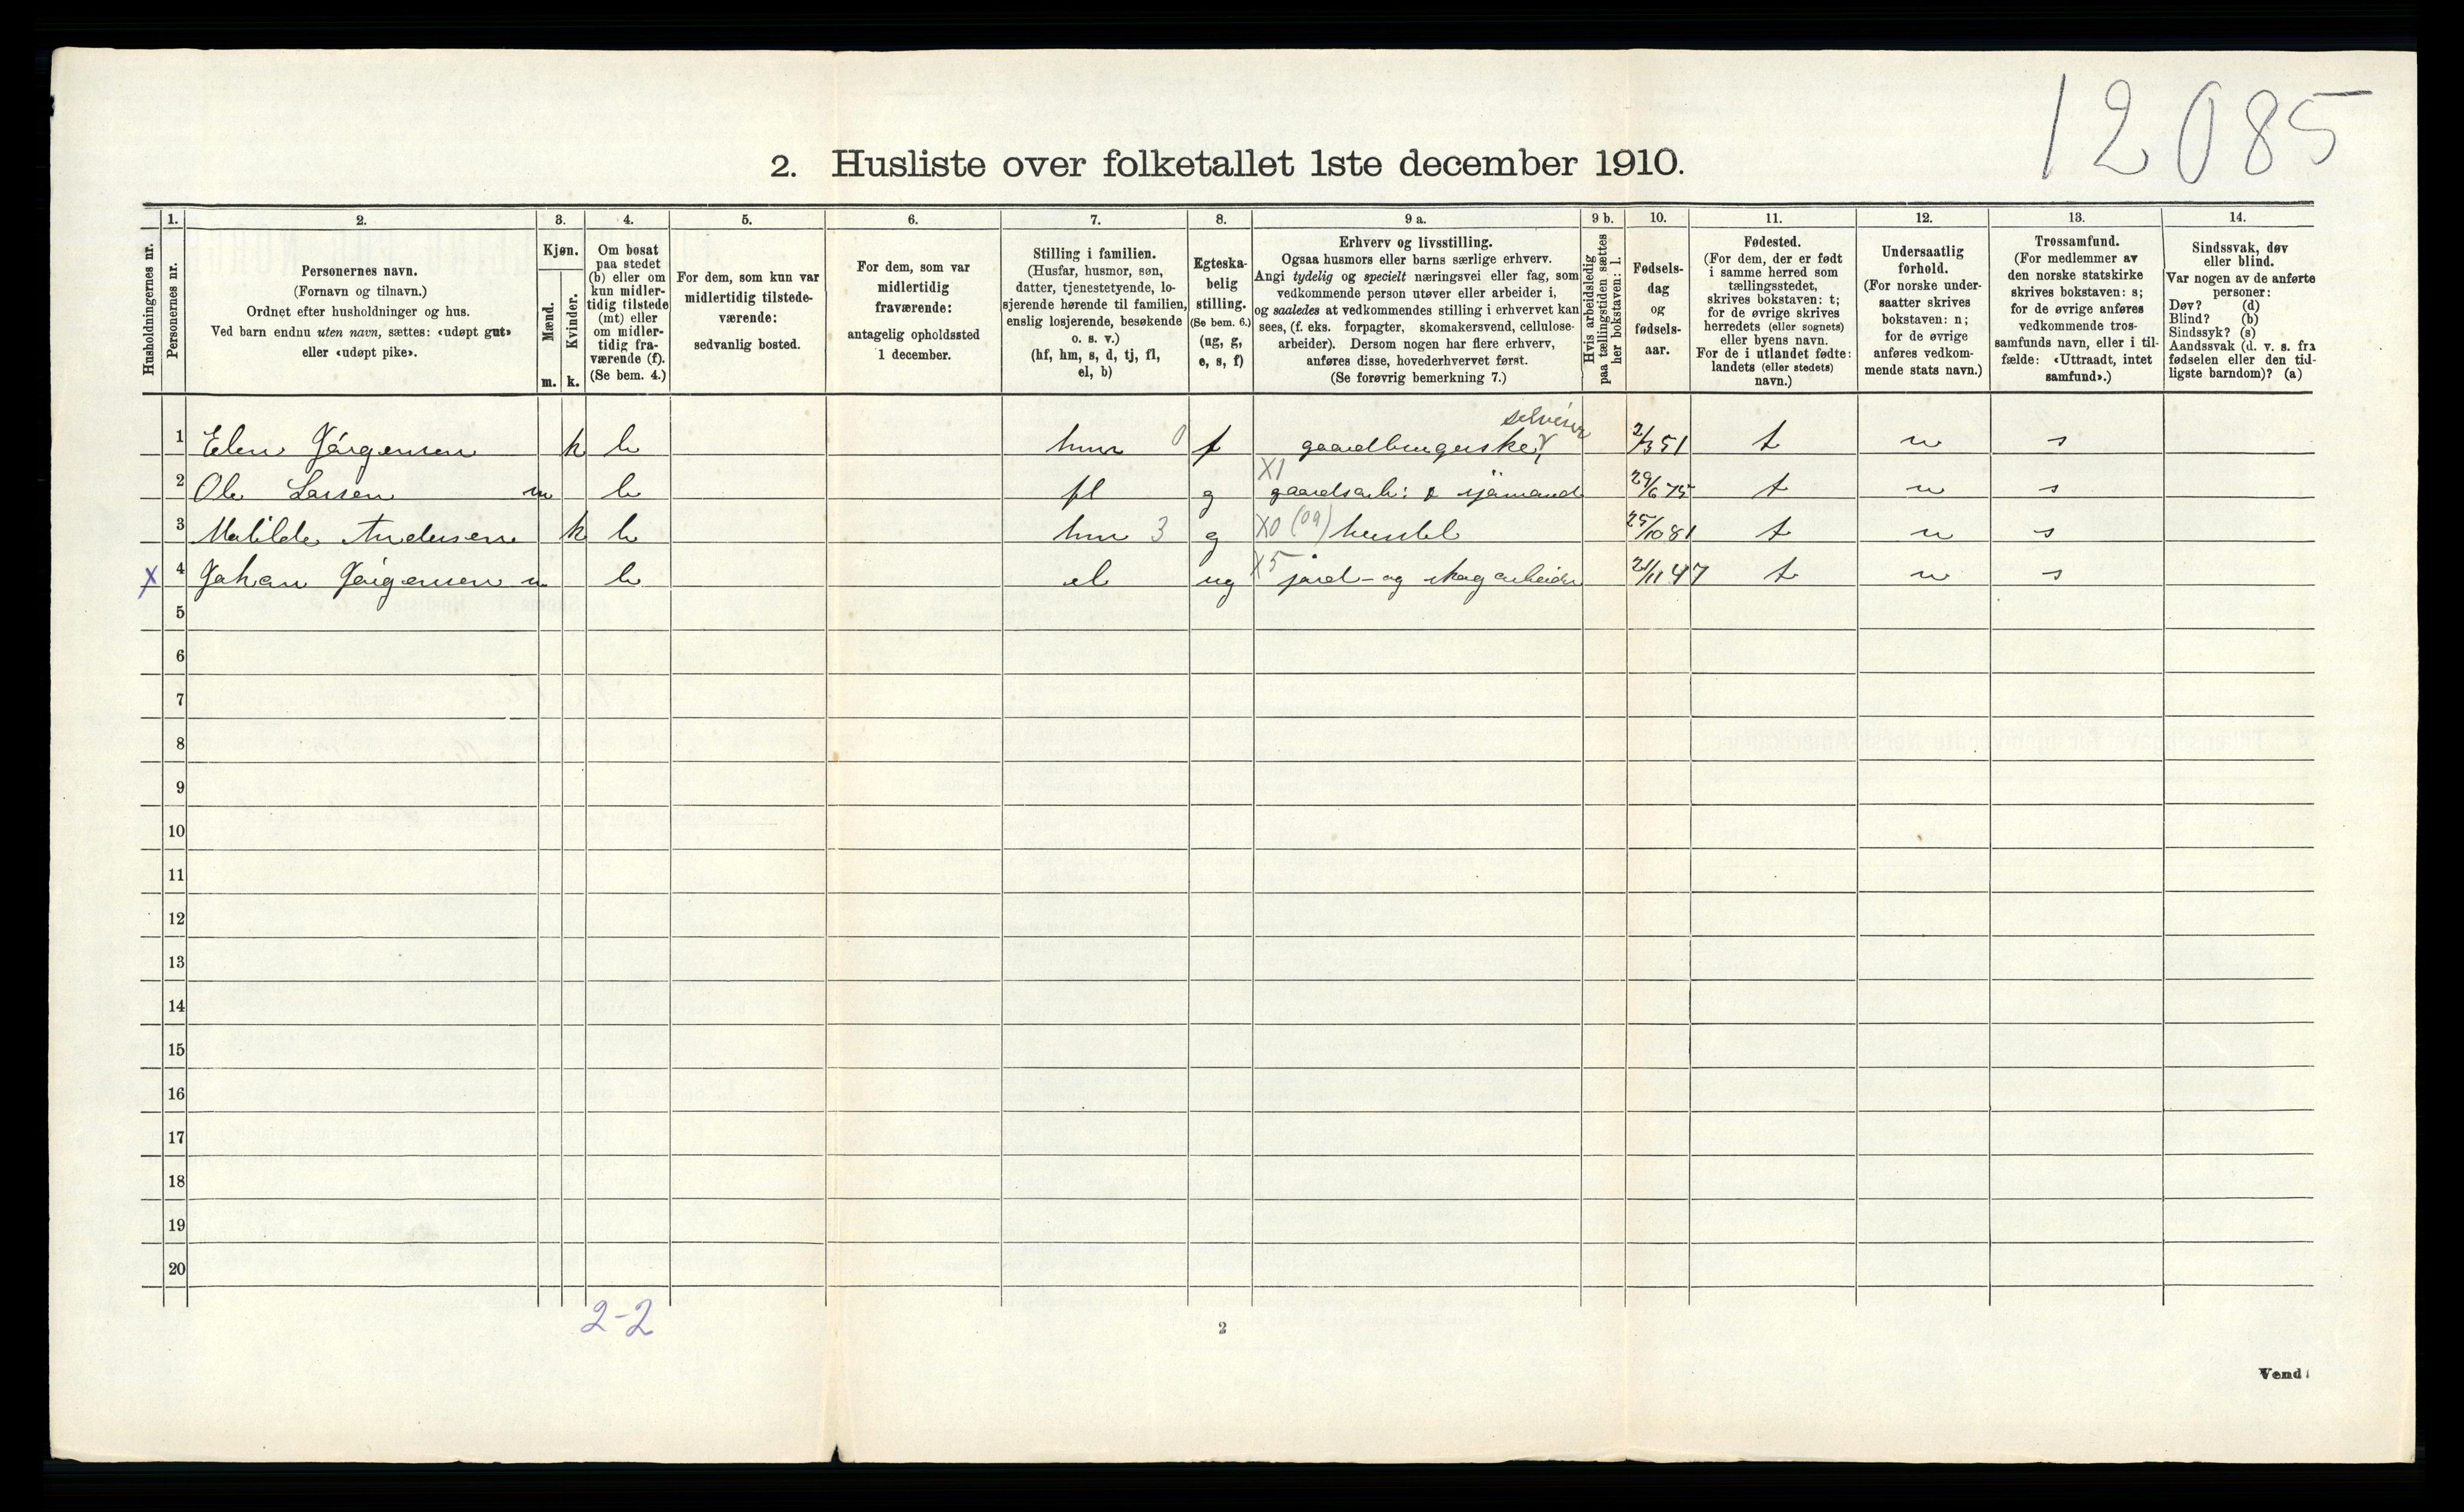 12085
2. Husliste over folketallet 1ste december 1910.
Husholdningernes nr.
1.
Personernes nr.
2.
Personernes navn.
(Fornavn og tilnavn.)
Ordnet efter husholdninger og hus.
Ved barn endnu uten navn, sættes: «udøpt gut»
eller «udøpt pike».
3.
Kjøn.
Mænd.
Kvinder.
m. k.
4.
Om bosat
paa stedet
(b) eller om
kun midler-
tidig tilstede
(mt) eller
om midler-
tidig fra-
værende (f).
(Se bem. 4.)
5.
For dem, som kun var
midlertidig tilstede-
værende:
sedvanlig bosted.
6.
For dem, som var
midlertidig
fraværende:
antagelig opholdssted
1 december.
7.
Stilling i familien.
(Husfar, husmor, søn,
datter, tjenestetyende, lo-
sjerende hørende til familien,
enslig losjerende, besøkende
o. s. v.)
(hf, hm, s, d, tj, fl,
el, b)
8.
Egteska-
belig
stilling.
(Se bem. 6.)
(ug, g,
e, s, f)
9 a.
Erhverv og livsstilling.
Ogsaa husmors eller barns særlige erhverv.
Angi tydelig og specielt næringsvei eller fag, som
vedkommende person utøver eller arbeider i,
og saaledes at vedkommendes stilling i erhvervet kan
sees, (f. eks. forpagter, skomakersvend, cellulose-
arbeider). Dersom nogen har flere erhverv,
anføres disse, hovederhvervet først.
(Se forøvrig bemerkning 7.)
9 b.
Hvis arbeidsledig
paa tællingstiden sættes
her bokstaven: l.
10.
Fødsels-
dag
og
fødsels-
aar.
11.
Fødested.
(For dem, der er født
i samme herred som
tællingsstedet,
skrives bokstaven: t;
for de øvrige skrives
herredets (eller sognets)
eller byens navn.
For de i utlandet fødte:
landets (eller stedets)
navn.)
12.
Undersaatlig
forhold.
(For norske under-
saatter skrives
bokstaven: n;
for de øvrige
anføres vedkom-
mende stats navn.)
13.
Trossamfund.
(For medlemmer av
den norske statskirke
skrives bokstaven: s;
for de øvrige anføres
vedkommende tros-
samfunds navn, eller i til-
fælde: «Uttraadt, intet
samfund».)
14.
Sindssvak, døv
eller blind.
Var nogen av de anførte
personer:
Døv? (d)
Blind? (b)
Sindssyk? (s)
Aandssvak (d. v. s. fra
fødselen eller den tid-
ligste barndom)? (a)
1 Elen Jørgensen k b hm 0 f gaardbrugerske 2/3 51 t n s
2 Ole Larsen m b fl g X1 gaardsarb: & sjømand 29/6 75 t n s
3 Matilde Andersen k b hm 3 g X0 (09) husstel 25/10 81 t n s
X 4 Johan Jørgensen m b el ug X5 jord- og skogarbeider 21/11 47 t n s
5
6
7
8
9
10
11
12
13
14
15
16
17
18
19
20
2-2
2
Vend!